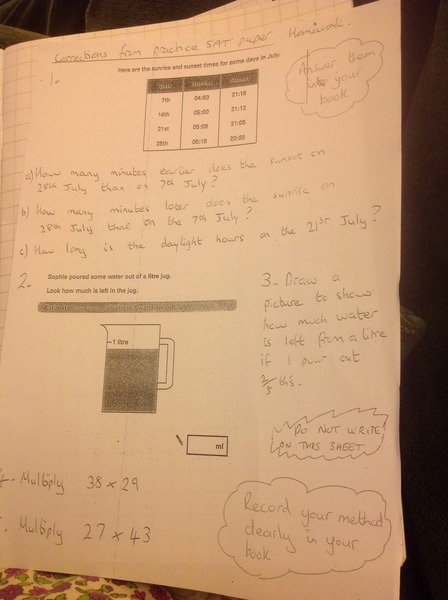 Corrections from practice SAT paper Homework.
1.
Here are the sunrise and sunset times for some days in July.
Date Sunrise Sunset
7th 04:53 21:18
14th 05:00 21:12
21st 05:09 21:05
28th 05:18 20:55
Answer them
into your
book
a) How many minutes earlier does the sunset on
28th July than on 7th July?
b) How many minutes later does the sunrise on
28th July than on the 7th July?
c) How long is the daylight hours on the 21st July?
2.
Sophie poured some water out of a litre jug.
Look how much is left in the jug.
1 litre
ml
3. Draw a
picture to show
how much water
is left from a litre
if I pour out
2/5 th's.
DO NOT WRITE
ON THIS SHEET
4. Multiply 38 x 29
Multiply 27 x 43
Record your method
clearly in your
book